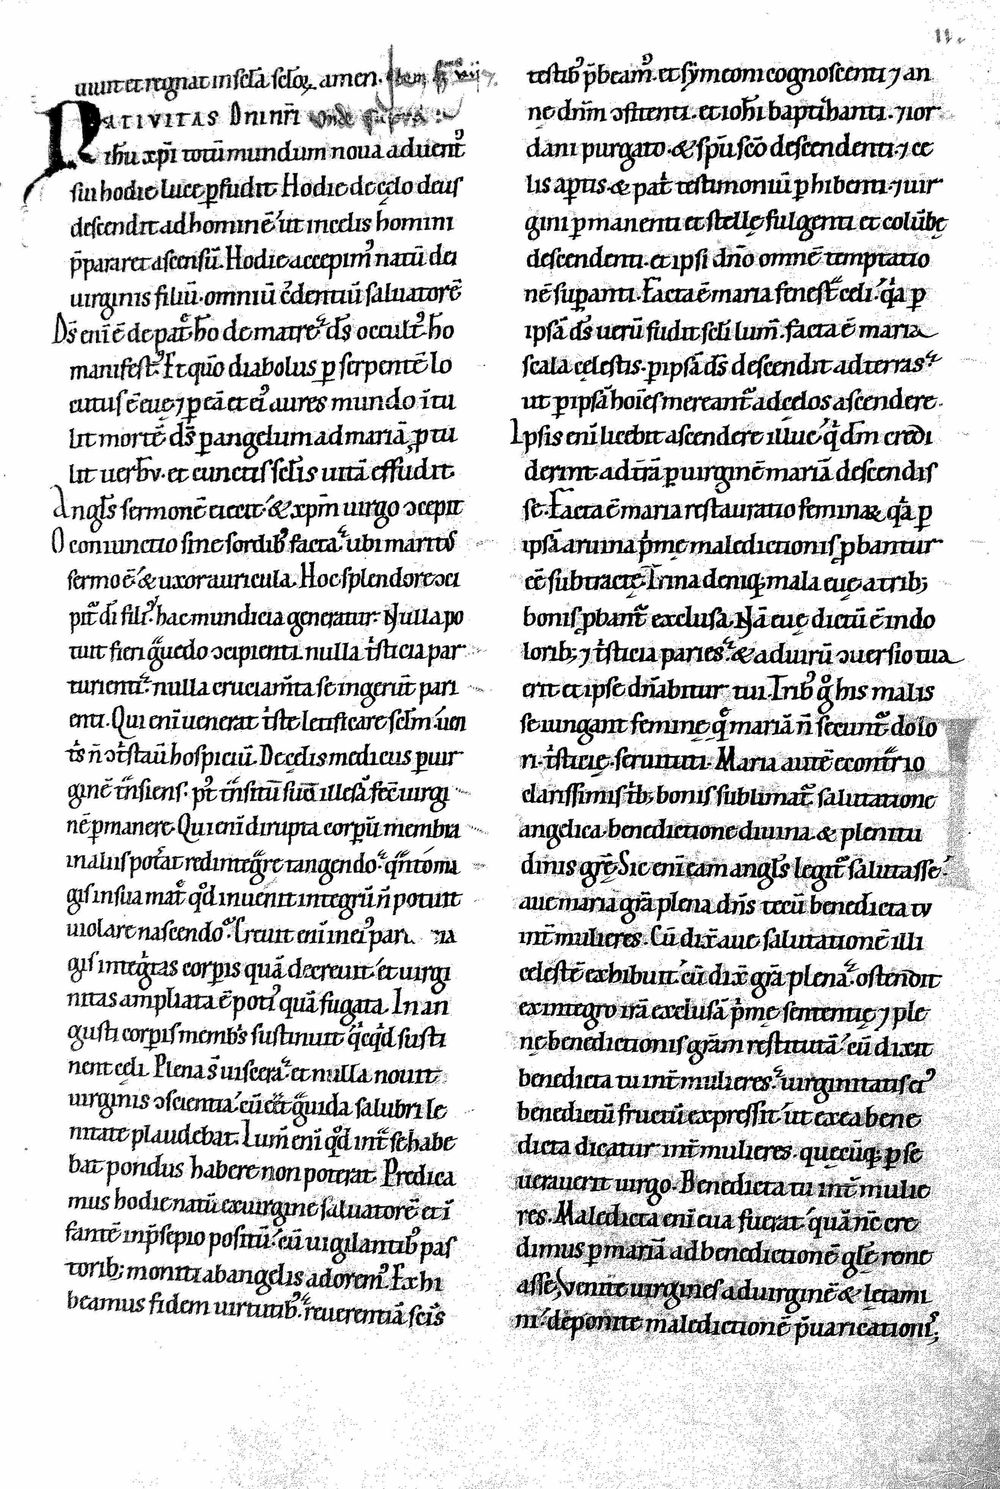 11.
uiuit et regnat in scl̄a scl̄oꝝ. amen.
NATIVITAS Dn̄i nr̄i
ihū xp̄i totū mundum noua aduent᾽
sui hodie luce ꝑfudit Hodie de cęlo deus
descendit ad hominē ut in celis homini
p̄pararet ascensū. Hodie accepim᾽ natū dei
uirginis filiū. omniū c̄dentiū saluatorē
Ds̄ eni ē de pat̄e. hō de matre. ds̄ occult᾽. hō
manifest᾽. Et quō diabolus ꝑ serpentē lo
cutus ē euę ⁊ ꝑ eā et ei᾽ aures mundo ītu
lit mortē. ds̄ ꝑ angelum ad mariā ꝓtu
lit uerbv. et cunctis sclīs uitā effudit.
Angls̄ sermonē eiecit. & xpm̄ uirgo ɔcepit
O coniunctio sine sordib᾽ facta. ubi maritus
sermo ē & uxor auricula. Hoc splendore ɔci
pit̄ dī fili᾽. hac mundicia generatur. Nulla po
tuit fieri g̊uedo ɔcipienti. nulla t̄sticia par
turienti. nulla cruciam̄ta se ingerūt pari
enti. Qui eni uenerat t̄ste letificare sclm̄ uen
t̄s n̄ ɔt̄stau hospiciū. De cęlis medicus ꝑ uir
ginē t̄nsiens. p᾽t t̄nsitū suū illesā fec̄ uirgi
nē ꝑmanere. Qui eni dirupta corpū membra
in aliis pot̄at redintegre tangendo.
gis in sua mat̄ qd̄ inuenit integrū n̄ potuit
uiolare nascendo. Creuit eni in ei᾽
gis integ̊tas corꝑis quā decreuit. et uirgi
nitas ampliata ē poti᾽ quā fugata. In an
gusti corꝑis membs̄ sustinuit q̊eqd̄ susti
nent cęli. Plena s̄ uiscera. et nulla nouit
uirginis ɔscientia. cū eēt g̊uida salubri le
nitate plaudebat. Lum̄ eni qd̄ int̄ se habe
bat pondus habere non poterat. Predica
mus hodie natū ex uirgine saluatorē et ī
fantē in p̄sepio positū. cū uigilantib᾽ pas
torib; moniti ab angelis adorem᾽. Exhi
beamus fidem uirtutib᾽. reuerentiā scīs
testib᾽ p̄beam᾽. et symeoni cognoscenti ⁊ an
ne dn̄m ɔfitenti. et ioh̄i baptizanti. ⁊ ior
dani purgato. & sp̄u scō descendenti. ⁊ cę
lis aꝑtis. & pat̄ testimoniū ꝑhibenti. ⁊ uir
gini ꝑmanenti et stellę fulgenti et colūbę
descendenti. et ipsi dn̄o omnē temptatio
nē suꝑanti. Facta ē maria fenest̄ celi. q̊a ꝑ
ipsā ds̄ uerū fudit scli lum̄. facta ē maria
scala cęlestis. ꝑ ipsā ds̄ descendit ad terras.
ut ꝑ ipsā hoīes mereant̄ ad celos ascendere.
Ipsis eni licebit ascendere illuc. q̊ dm̄ credi
derint ad t̄rā ꝑ uirginē mariā descendis
se. Facta ē maria restauratio feminaꝝ. q̊a ꝑ
ipsā a ruina p̊mę maledictionis ꝓbantur
eē subtractę. Trina deniq; mala euę a trib;
bonis ꝓbant̄ exclusa. Nā euę dictū ē in do
lorib; ⁊ t̄sticia paries. & ad uirū ɔuersio tua
erit et ipse dn̄abitur tui. Trib᾽ g̊ his malis
se iungant feminę. q̄ mariā n̄ secunt̄ dolo
ri. t̄sticię. seruituti. Maria autē econtrario
clarissimis t̄b; bonis sublimat̄. salutatione
angelica. benedictione diuina. & plenitu
dinis grę̄. Sic eni eam angls̄ legit̄ salutasse.
aue maria gr̄a plena dn̄s tecū benedicta tv
int̄ mulieres. Cū dix̄ aue salutationē illi
celestē exhibuit. cū dix̄ gr̄a plena. ostendit
ex integro irā exclusā p̊mę sententię ⁊ ple
nę benedictionis gr̄am restitutā. cū dixit
benedicta tu int̄ mulieres. uirginitatis ei᾽
benedictū fructū expressit. ut ex ea bene
dicta dicatur int̄ mulieres. quęcūq; ꝑse
uerauerit uirgo. Benedicta tu int̄ mulie
res. Maledicta eni eua fuerat. quā nc̄ cre
dimus ꝑ mariā ad benedictionē glę̄ reme
asse. Venite uirgines ad uirginē &
ni. deponite maledictionē p̄uaricationi᾽;